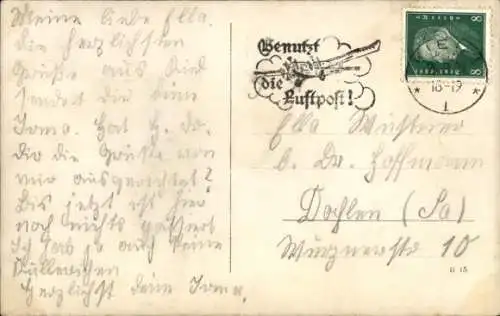 Meine liebe Ella.
Die herzlichsten
Grüße aus
sendet dir deine
Irma. Hat
dir die Grüße von
mir ausgerichtet?
Bis jetzt ist hier
noch nichts passiert
Ich hab ja auch keine

Herzlichst deine Irma.
Benutzt
die
Luftpost!
8 8
18-19
1
Ella Wüstner
b. Dr. Hoffmann
Dahlen (Sa)
Wurznerstr 10
G 15